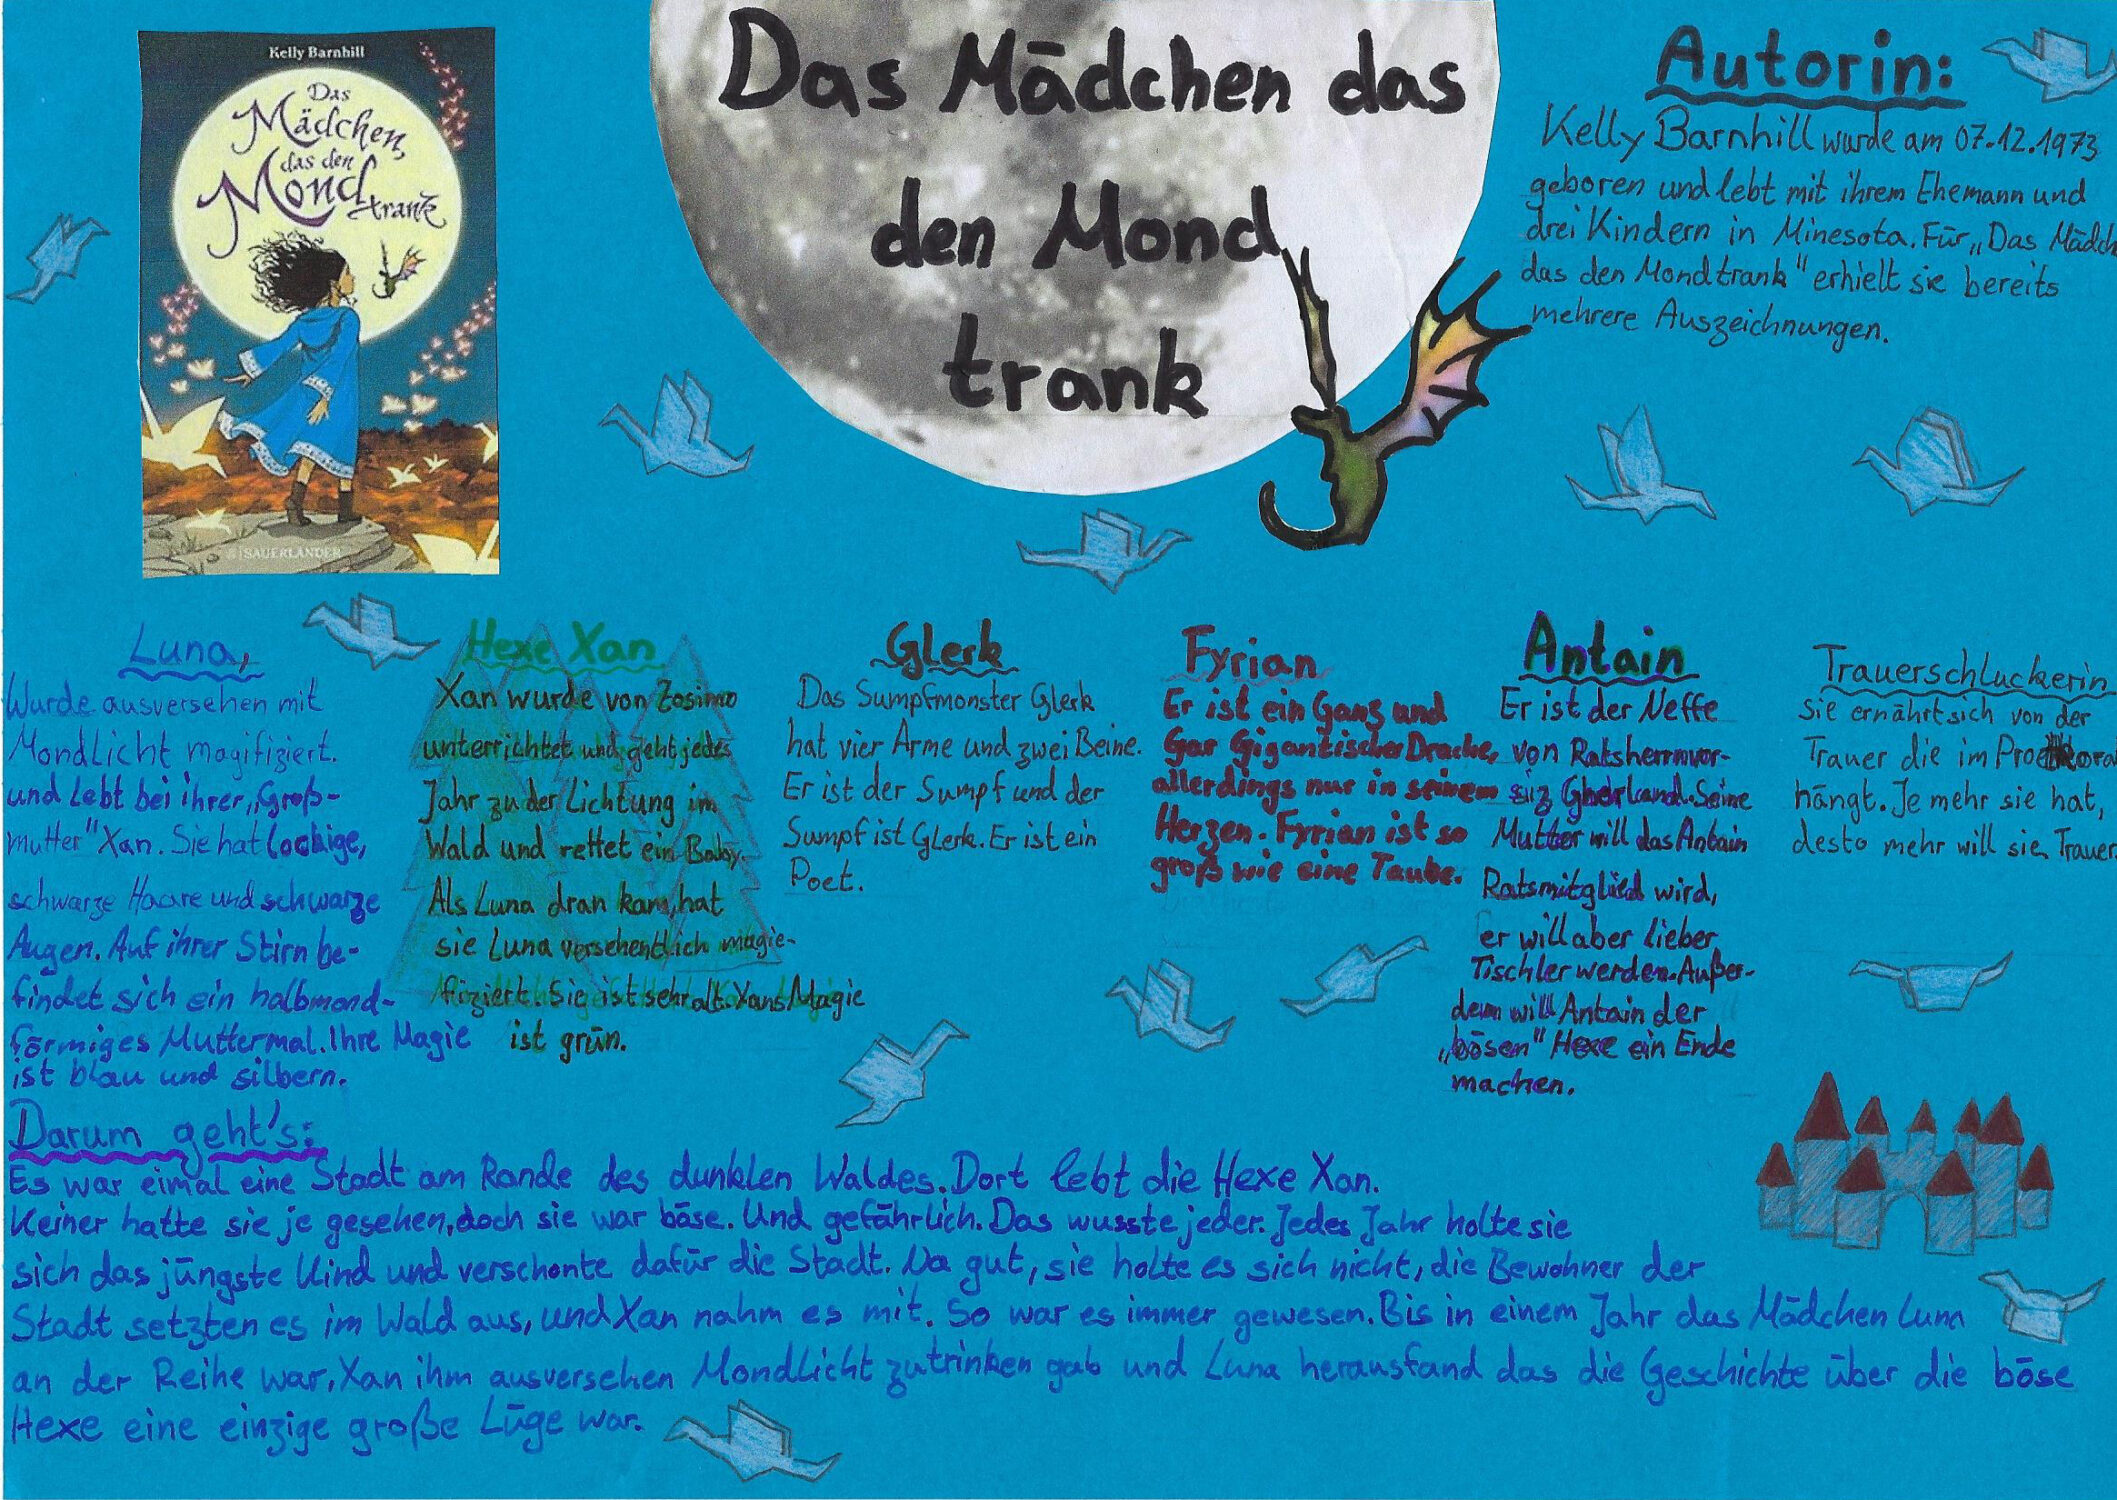 Kelly Barnhill
Das
Mädchen,
das den
Mond
trank
SAUERLÄNDER
Das Mädchen das
den Mond
trank
Autorin:
Kelly Barnhill wurde am 07.12.1973
geboren und lebt mit ihrem Ehemann und
drei Kindern in Minesota. Für „Das Mädch
das den Mond trank" erhielt sie bereits
mehrere Auszeichnungen.
Luna,
Wurde ausversehen mit
Mondlicht magifiziert.
und lebt bei ihrer „Groß-
mutter" Xan. Sie hat lockige,
schwarze Haare und schwarze
Augen. Auf ihrer Stirn be-
findet sich ein halbmond-
förmiges Muttermal. Ihre Magie
ist blau und silbern.
Hexe Xan
Xan wurde von Zosimo
unterrichtet und geht jedes
Jahr zu der Lichtung im
Wald und rettet ein Baby.
Als Luna dran kam, hat
sie Luna versehentlich magie-
fiziert. Sie ist sehr alt. Xans Magie
ist grün.
Glerk
Das Sumpfmonster Glerk
hat vier Arme und zwei Beine.
Er ist der Sumpf und der
Sumpf ist Glerk. Er ist ein
Poet.
Fyrian
Er ist ein Ganz und
Gar Gigantischer Drache,
allerdings nur in seinem
Herzen. Fyrian ist so
groß wie eine Taube.
Antain
Er ist der Neffe
von Ratsherrnvor-
siz Gherland. Seine
Mutter will das Antain
Ratsmitglied wird,
er will aber lieber
Tischler werden. Außer-
dem will Antain der
„bösen" Hexe ein Ende
machen.
Trauerschluckerin
Sie ernährt sich von der
Trauer die im
hängt. Je mehr sie hat,
desto mehr will sie Trauer.
Darum geht's:
Es war eimal eine Stadt am Rande des dunklen Waldes. Dort lebt die Hexe Xan.
Keiner hatte sie je gesehen, doch sie war böse. Und gefährlich. Das wusste jeder. Jedes Jahr holte sie
sich das jüngste Kind und verschonte dafür die Stadt. Na gut, sie holte es sich nicht, die Bewohner der
Stadt setzten es im Wald aus, und Xan nahm es mit. So war es immer gewesen. Bis in einem Jahr das Mädchen Luna
an der Reihe war, Xan ihm ausversehen Mondlicht zutrinken gab und Luna herausfand das die Geschichte über die böse
Hexe eine einzige große Lüge war.